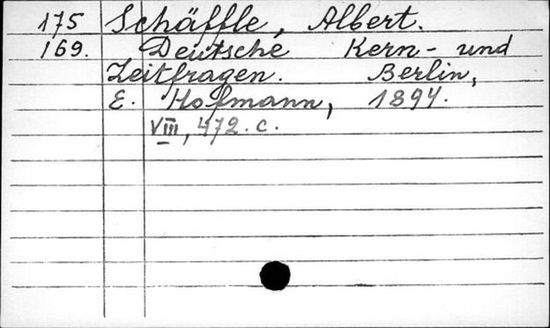 175 Schäffle, Albert.
169. Deutsche Kern- und
Zeitfragen. Berlin,
E. Hofmann, 1894.
VIII, 472. c.